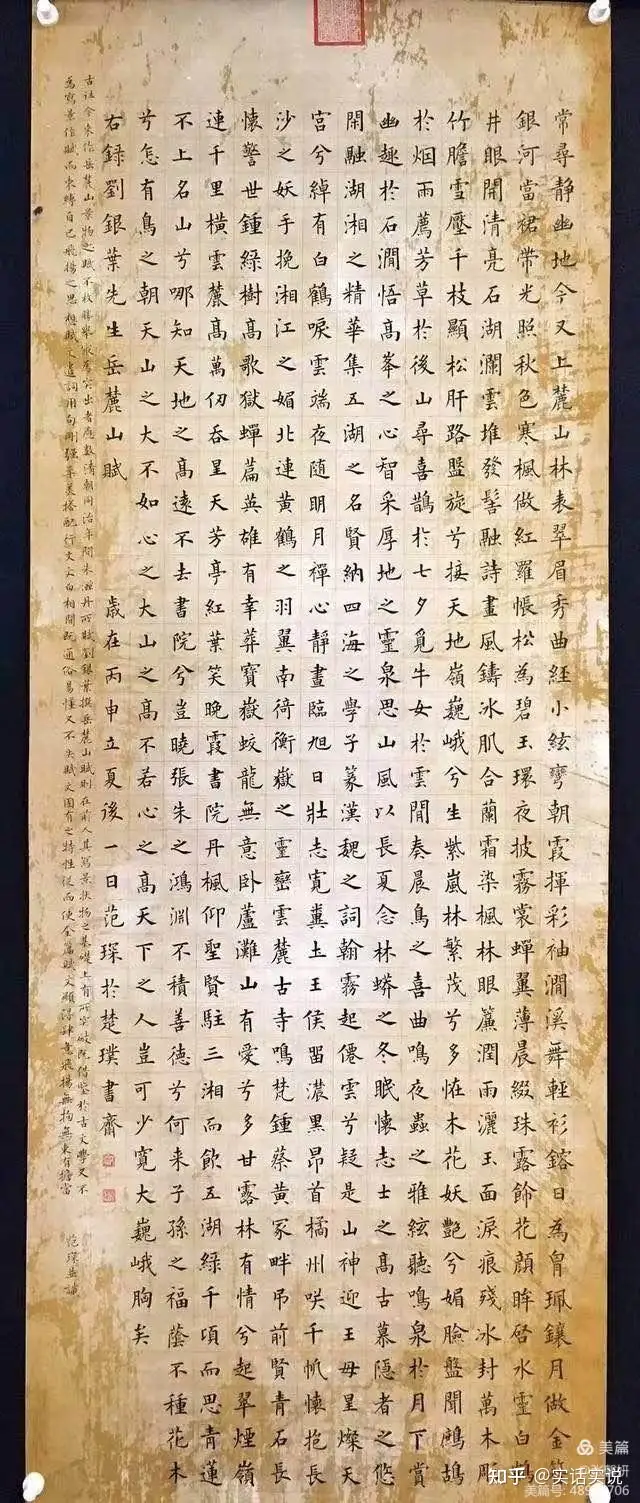 常尋靜幽地今又上麓山林表翠眉秀曲經小絃彎朝霞揮彩袖澗溪舞輕衫鎔日為胄珮鑲月做金
銀河當裙帶光照秋色寒楓做紅羅帳松為碧玉環夜披霧裳蟬翼薄晨綴珠露飾花顏眸啓水靈白鶴
井眼開清亮石湖瀾雲堆發髻融詩畫風鑄冰肌合蘭霜染楓林眼簾潤雨灑玉面淚痕殘冰封萬木彫
竹膽雪壓千枝顯松肝路盤旋兮接天地嶺巍峨兮生紫嵐林繁茂兮多怪木花妖艷兮媚臉盤聞鷓鴣
於烟雨薦芳草於後山尋喜鵲於七夕覓牛女於雲間奏晨鳥之喜曲鳴夜蟲之雅絃聽鳴泉於月下賞
幽趣於石澗悟高峯之心智采厚地之靈泉思山風以長夏念林蟒之冬眠懷志士之高古慕隱者之悠
閑融湖湘之精華集五湖之名賢納四海之學子篆漢魏之詞翰霧起僊雲兮疑是山神迎王母星燦天
宮兮綽有白鶴唳雲端夜随明月禪心靜晝臨旭日壯志寬糞土王侯留濃黑昂首橘州唉千帆懷抱長
沙之妖手挽湘江之媚北連黃鶴之羽翼南倚衡嶽之靈巒雲麓古寺鳴梵鍾蔡黃冢畔吊前賢青石長
懷警世鍾綠樹高歌獄蟬篇英雄有幸葬寶嶽蛟龍無意卧蘆灘山有愛兮多甘露林有情兮起翠煙嶺
連千里橫雲麓高萬仞吞星天芳亭紅葉笑晚霞書院丹楓仰聖賢駐三湘而飲五湖綠千項而思青蓮
不上名山兮哪知天地之高遠不去書院兮豈曉張朱之鴻淵不積善德兮何来子孫之福蔭不種花木
兮怎有鳥之朝天山之大不如心之大山之高不若心之高天下之人豈可少寬大巍峨胸矣
右録劉銀葉先生岳麓山賦 歲在丙申立夏後一日范琛於楚璞書齋
古往今来作岳麓山景物之賦不枚勝舉最為突出者應數清朝同治年間朱滋丹所賦劉銀葉撰岳麓山賦則在前人其寫景狀物之基礎上有所突破既借鑒於古文學又不
為寫景作賦而束縛自己飛揚之思想賦文遣詞用句剛強柔美搭配行文文白相間既通俗易懂又不失賦文固有之特性從而使全篇賦文顯得肆意飛揚無拘無束有擔當
范琛並識
美篇
知乎 @实话实说